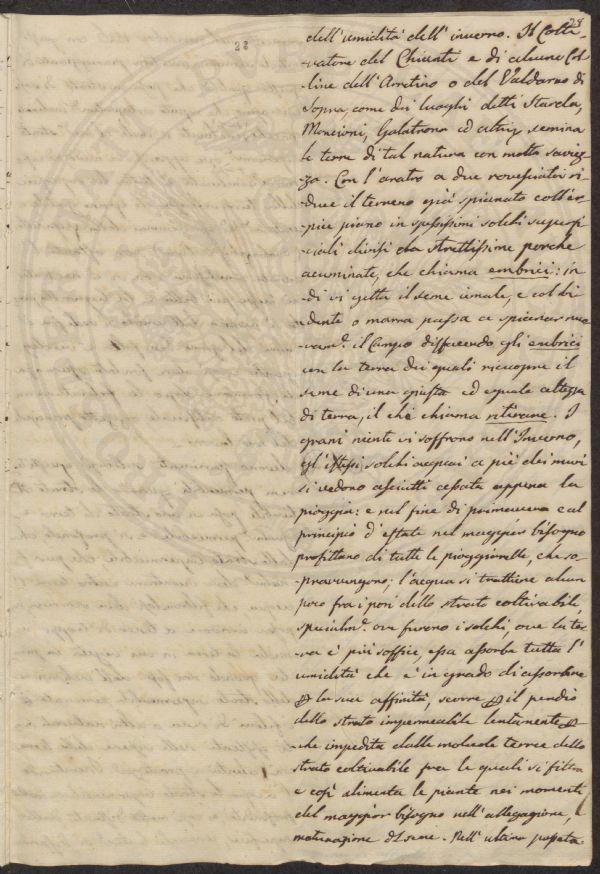 23
22
dell'umidità dell'inverno. Il Colti-
-vatore del Chianti e di alcune Col-
line dell'Aretino o del Valdarno di
Sopra, come dei luoghi detti Starda,
Moncioni, Galatrona ed altri, semina
le terre di tal natura con molta saviez-
za. Con l'aratro a due rovesciatoi ri-
duce il terreno già spianato coll'er-
-pice piano in spessissimi solchi superfi
ciali divisi da strettissime porche
acuminate, che chiama embrici: in
di vi getta il seme a male, e col bi
dente o marra passa a spianar nuo
vam.e il Campo disfacendo gli embrici
con la terra dei quali ricuopre il
seme di una giusta ed eguale altezza
di terra, il che chiama ritirare. I
grani niente vi soffrono nell'Inverno,
gl'istessi solchi acquai a piè dei muri
si vedono asciutti cessata appena la
pioggia: e nel fine di primavera e al
principio d'estate nel maggior bisogno
profittano di tutte le pioggiarelle, che so-
-pravvengono; l'acqua si trattiene alcun
poco fra i pori dello strato coltivabile,
specialm.e ove furono i solchi, ove la ter-
-ra è più soffice, essa assorbe tutta l'
umidità che è in grado di assorbire
per la sua affinità, scorre per il pendio
dello strato impermeabile lentamente per-
-che impedita dalle molecole terree dello
strato coltivabile fra le quali si filtra
e così alimenta le piante nei momenti
del maggior bisogno nell'allegagione, e
maturazione di semi. Nell'ultima passata